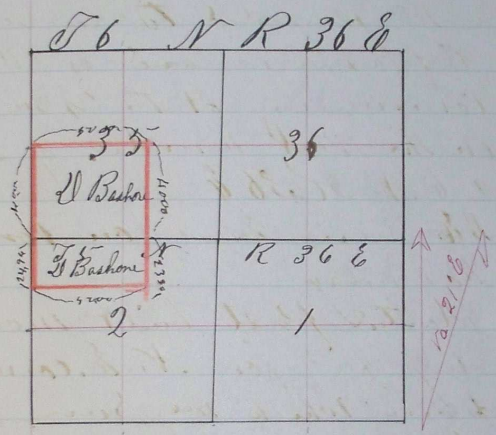 T 6 N R 36 E
35
36
D Bashore
4000
T 5 N
R 36 E
D Bashore
2
1
va 21° E